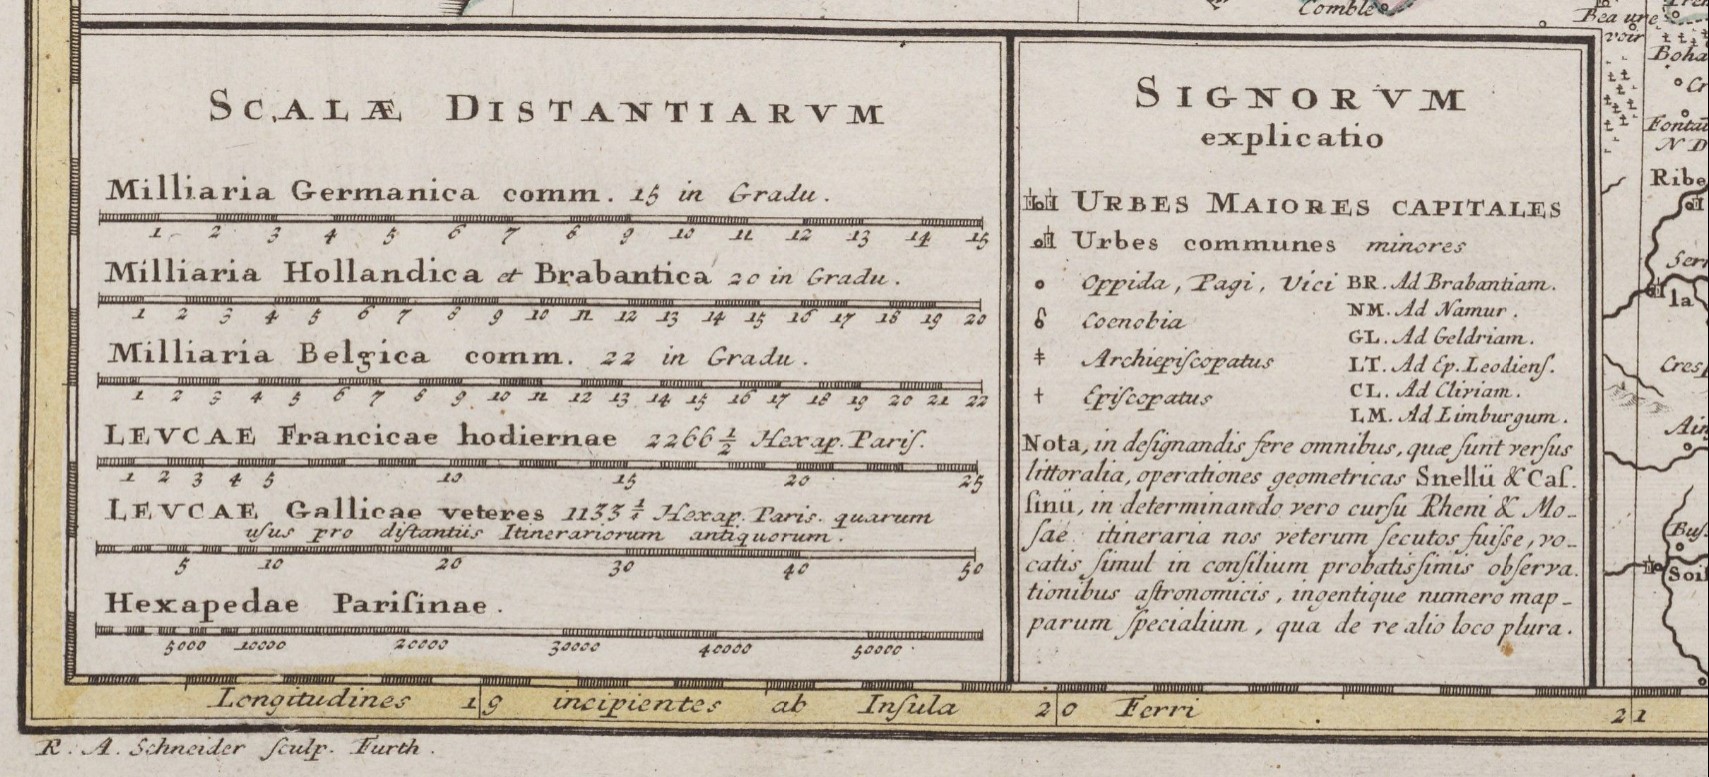 Comble
Beaure
voir
Boha
Cr
N D
Ribe
SCALÆ DISTANTIARVM
Milliaria Germanica comm. 15 in Gradu.
1 2 3 4 5 6 7 8 9 10 11 12 13 14 15
Milliaria Hollandica et Brabantica 20 in Gradu.
1 2 3 4 5 6 7 8 9 10 11 12 13 14 15 16 17 18 19 20
Milliaria Belgica comm. 22 in Gradu.
1 2 3 4 5 6 7 8 9 10 11 12 13 14 15 16 17 18 19 20 21 22
LEVCAE Francicae hodiernae 2266½ Hexap. Pariſ.
1 2 3 4 5 10 15 20 25
LEVCAE Gallicae veteres 1133¼ Hexap. Paris. quarum
uſus pro diſtantiis Itinerariorum antiquorum.
5 10 20 30 40 50
Hexapedae Pariſinae.
5000 10000 20000 30000 40000 50000
SIGNORVM
explicatio
URBES MAIORES CAPITALES
Urbes communes minores
Oppida, Pagi, Vici
Coenobia
Archiepiſcopatus
Epiſcopatus
BR. Ad Brabantiam.
NM. Ad Namur.
GL. Ad Geldriam.
LT. Ad Ep. Leodienſ.
CL. Ad Cliviam.
LM. Ad Limburgum.
Nota, in deſignandis fere omnibus, quæ ſunt verſus
littoralia, operationes geometricas Snellii & Caſ.
ſinii, in determinando vero curſu Rheni & Mo-
ſae itineraria nos veterum ſecutos fuiſse, vo-
catis ſimul in conſilium probatisſimis obſerva.
tionibus aſtronomicis, ingentique numero map-
parum ſpecialium, qua de re alio loco plura.
la
Creſp
Buſ
Soiſ
Longitudines 19 incipientes ab Inſula 20 Ferri 21
R. A. Schneider ſculp. Furth.